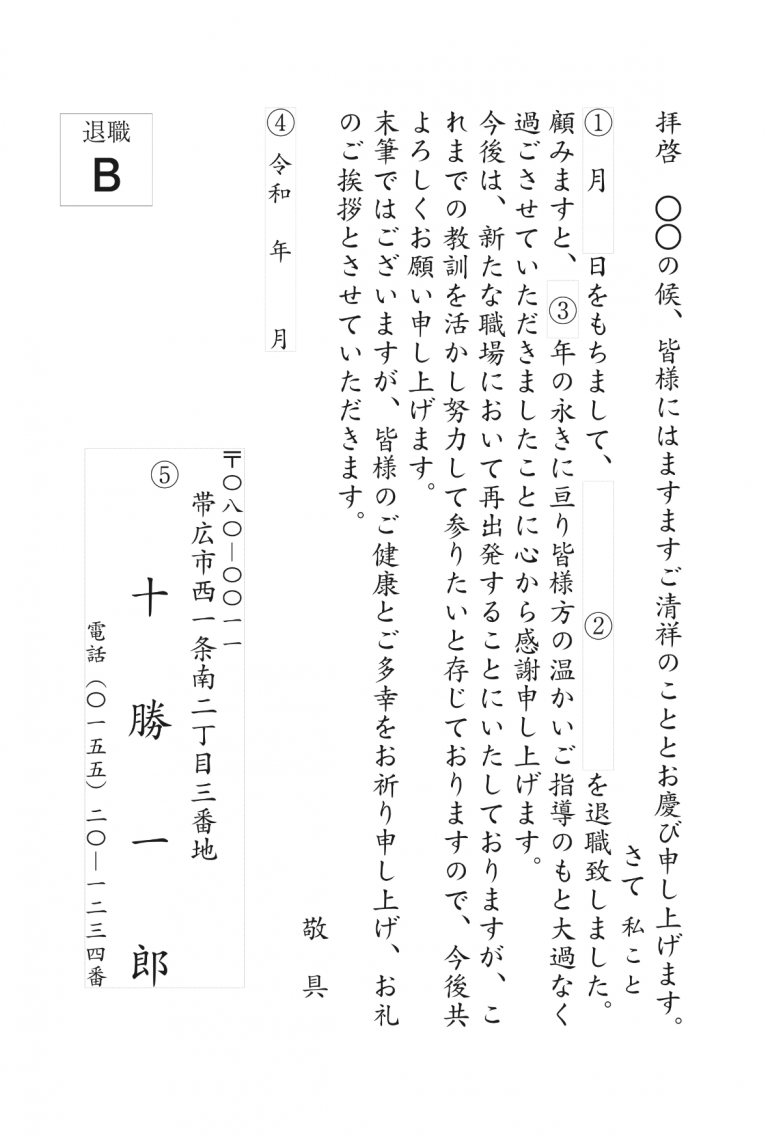 拝啓　〇〇の候、皆様にはますますご清祥のこととお慶び申し上げます。
さて 私こと
① 月　日をもちまして、②を退職致しました。
顧みますと、③年の永きに亘り皆様方の温かいご指導のもと大過なく
過ごさせていただきましたことに心から感謝申し上げます。
今後は、新たな職場において再出発することにいたしておりますが、こ
れまでの教訓を活かし努力して参りたいと存じておりますので、今後共
よろしくお願い申し上げます。
末筆ではございますが、皆様のご健康とご多幸をお祈り申し上げ、お礼
のご挨拶とさせていただきます。
敬　具
④ 令和　年　月
〒〇八〇―〇〇一一
帯広市西一条南二丁目三番地
⑤ 十　勝　一　郎
電話（〇一五五）二〇―一二三四番
退職
B